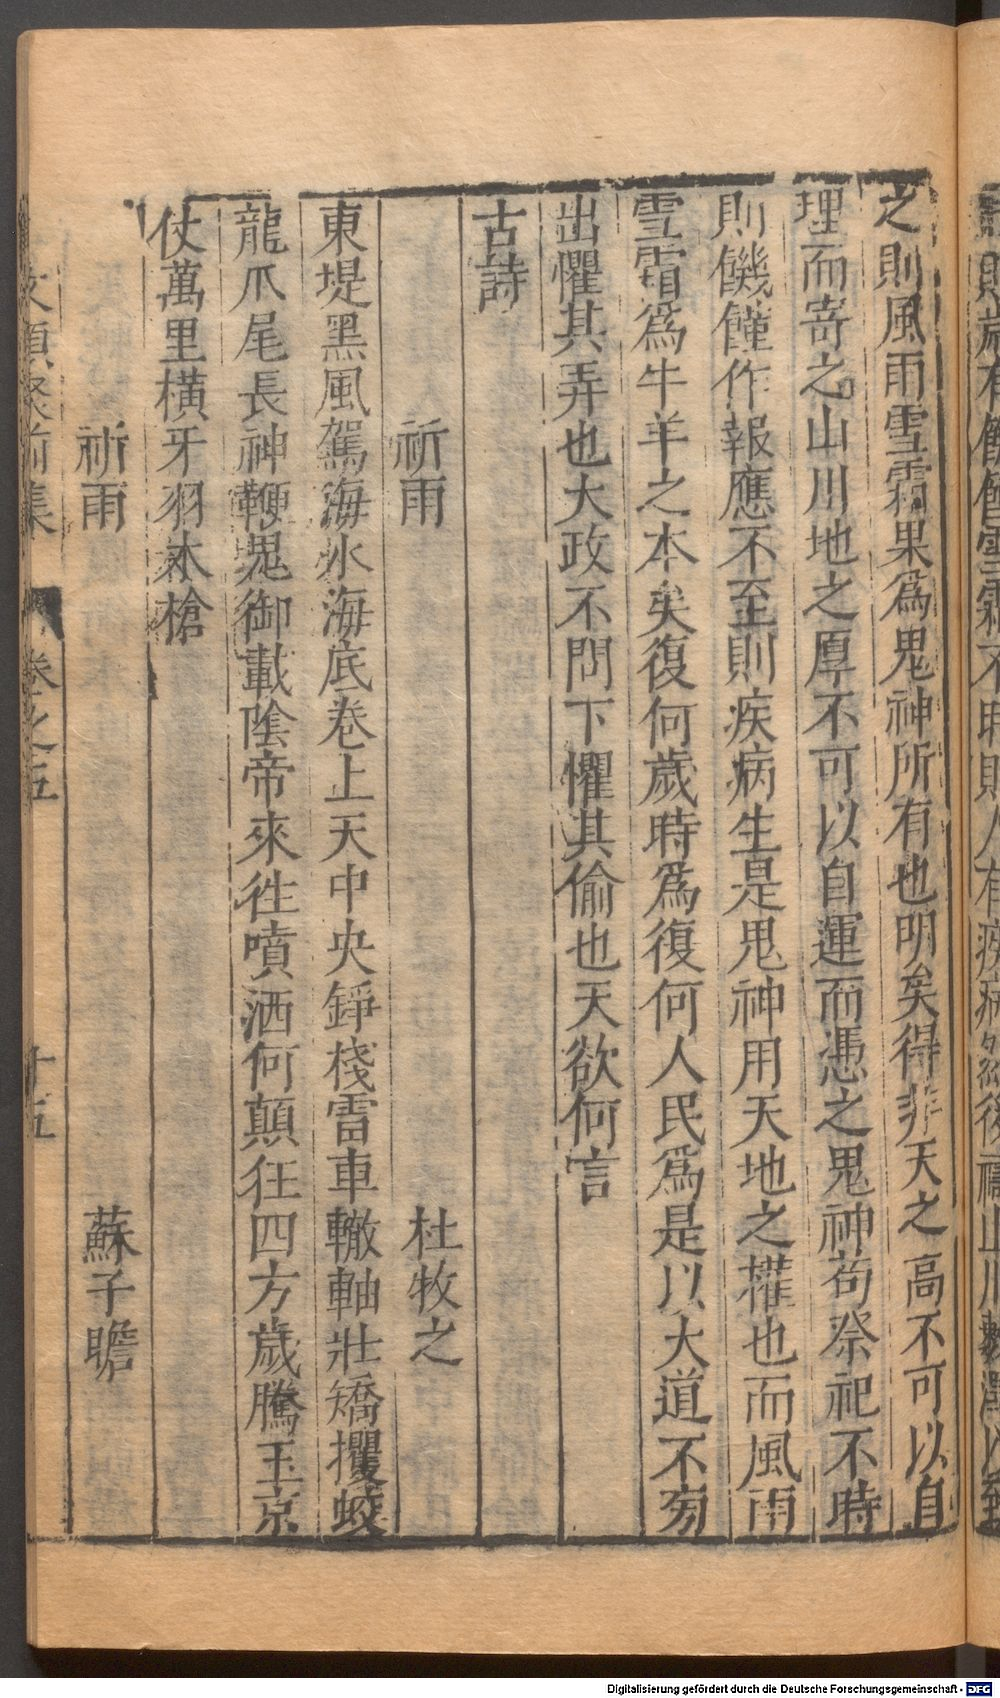 之則風雨雪霜果爲鬼神所有也明矣得非天之高不可以自
理而寄之山川地之厚不可以自運而憑之鬼神苟祭祀不時
則饑饉作報應不至則疾病生是鬼神用天地之權也而風雨
雪霜爲牛羊之本矣復何歲時爲復何人民爲是以大道不旁
出懼其弄也大政不問下懼其偷也天欲何言
古詩
祈雨 杜牧之
東堤黑風駕海水海底卷上天中央錚棧雷車轍軸壯矯攫蛟
龍爪尾長神鞭鬼御載陰帝來徃噴洒何顛狂四方歲騰玉京
仗萬里橫牙羽林槍
祈雨 蘇子瞻
文類聚前集 卷之五 十五
Digitalisierung gefördert durch die Deutsche Forschungsgemeinschaft - DFG